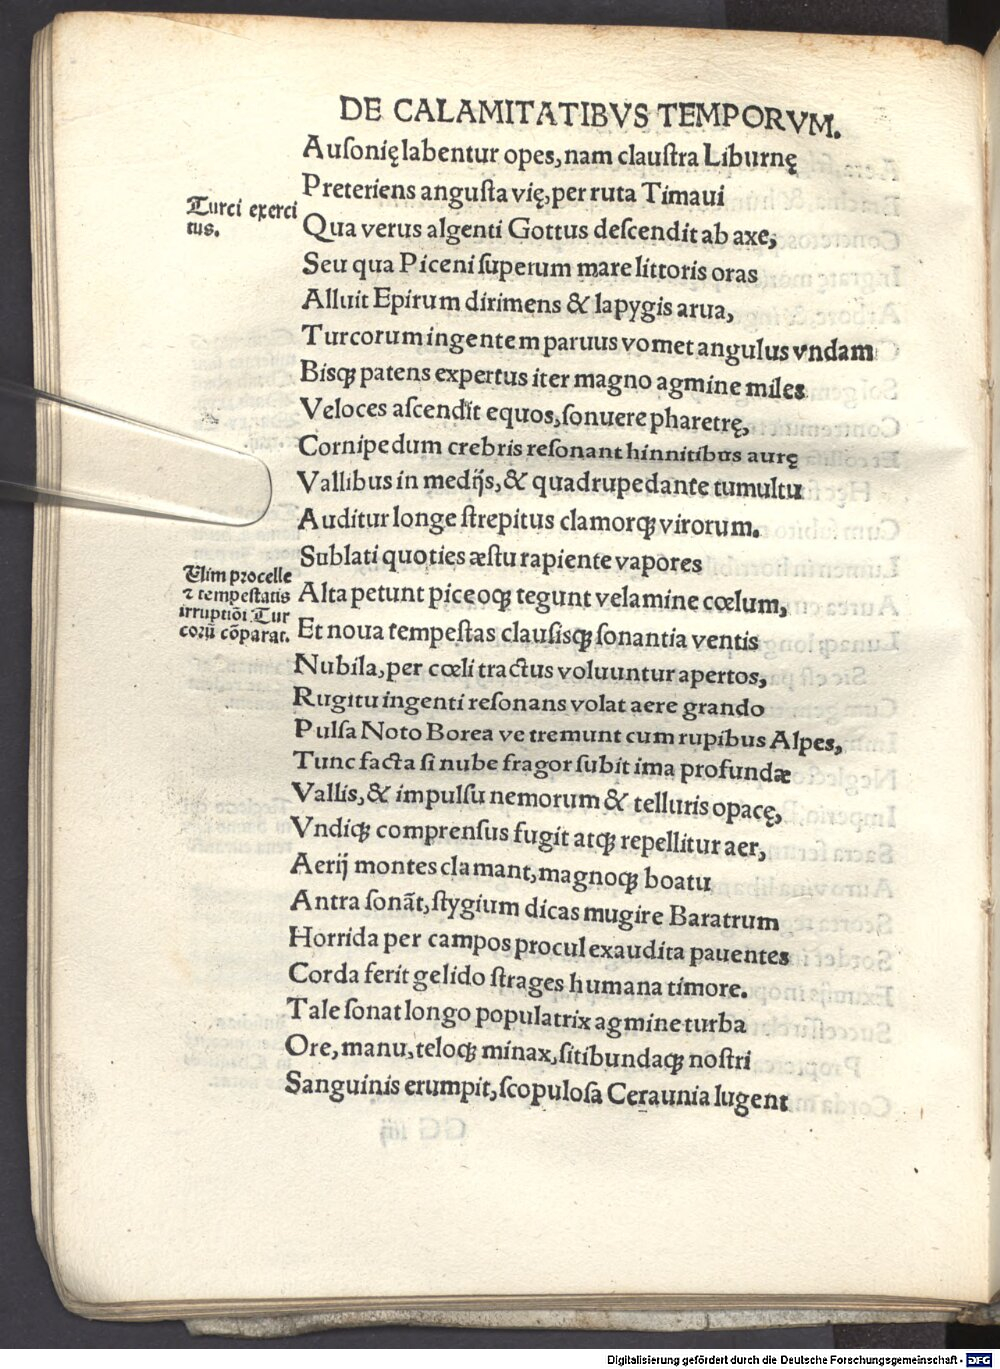 DE CALAMITATIBVS TEMPORVM.
Auſonię labentur opes, nam clauſtra Liburnę
Preteriens anguſta vię, per ruta Timaui
Turci exerci
tus.
Qua verus algenti Gottus deſcendit ab axe,
Seu qua Piceni ſuperum mare littoris oras
Alluit Epirum dirimens & Iapygis arua,
Turcorum ingentem paruus vomet angulus vndam
Bisqꝫ patens expertus iter magno agmine miles
Veloces aſcendit equos, ſonuere pharetrę,
Cornipedum crebris reſonant hinnitibus aurę
Vallibus in medijs, & quadrupedante tumultu
Auditur longe ſtrepitus clamorqꝫ virorum.
Sublati quoties æſtu rapiente vapores
Vim procelle
⁊ tempeſtatis
irruptiōi Tur
corū cōparat.
Alta petunt piceoqꝫ tegunt velamine cœlum,
Et noua tempeſtas clauſisqꝫ ſonantia ventis
Nubila, per cœli tractus voluuntur apertos,
Rugitu ingenti reſonans volat aere grando
Pulſa Noto Borea ve tremunt cum rupibus Alpes,
Tunc facta ſi nube fragor ſubit ima profundæ
Vallis, & impulſu nemorum & telluris opacę,
Vndiqꝫ comprenſus fugit atqꝫ repellitur aer,
Aerij montes clamant, magnoqꝫ boatu
Antra ſonāt, ſtygium dicas mugire Baratrum
Horrida per campos procul exaudita pauentes
Corda ferit gelido ſtrages humana timore.
Tale ſonat longo populatrix agmine turba
Ore, manu, teloqꝫ minax, ſitibundaqꝫ noſtri
Sanguinis erumpit, ſcopuloſa Ceraunia lugent
Digitalisierung gefördert durch die Deutsche Forschungsgemeinschaft - DFG